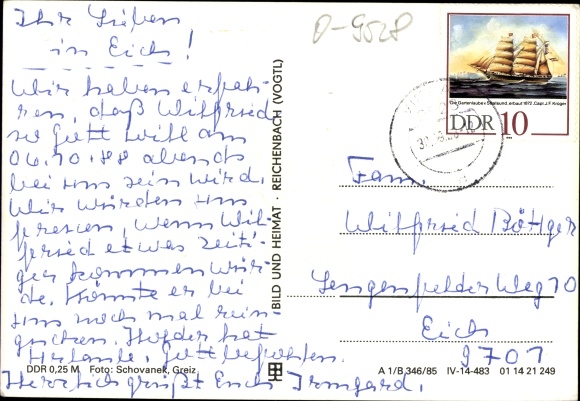 Ihr Lieben
in Eich!
Wir haben erfah-
ren, daß Wilfried
so Gott will am
06.10.88 abends
bei uns sein wird.
Wir würden uns
freuen, wenn Wil-
fried etwas zeiti-
ger kommen wür-
de. Könnte er bei
uns noch mal rein-
gucken. Holder hat
Urlaub. Gott befohlen.
Herzlich grüßt Euch Irmgard.
DDR 0,25 M Foto: Schovanek, Greiz
BILD UND HEIMAT · REICHENBACH (VOGTL)
D-9528
"Die Gartenlaube" v. Stralsund, erbaut 1872, Capt. J.F. Kroger
DDR 10
Fam.
Wilfried Böttger
Lengenfelder Weg 10
Eich
9701
A 1/B 346/85 IV-14-483 01 14 21 249